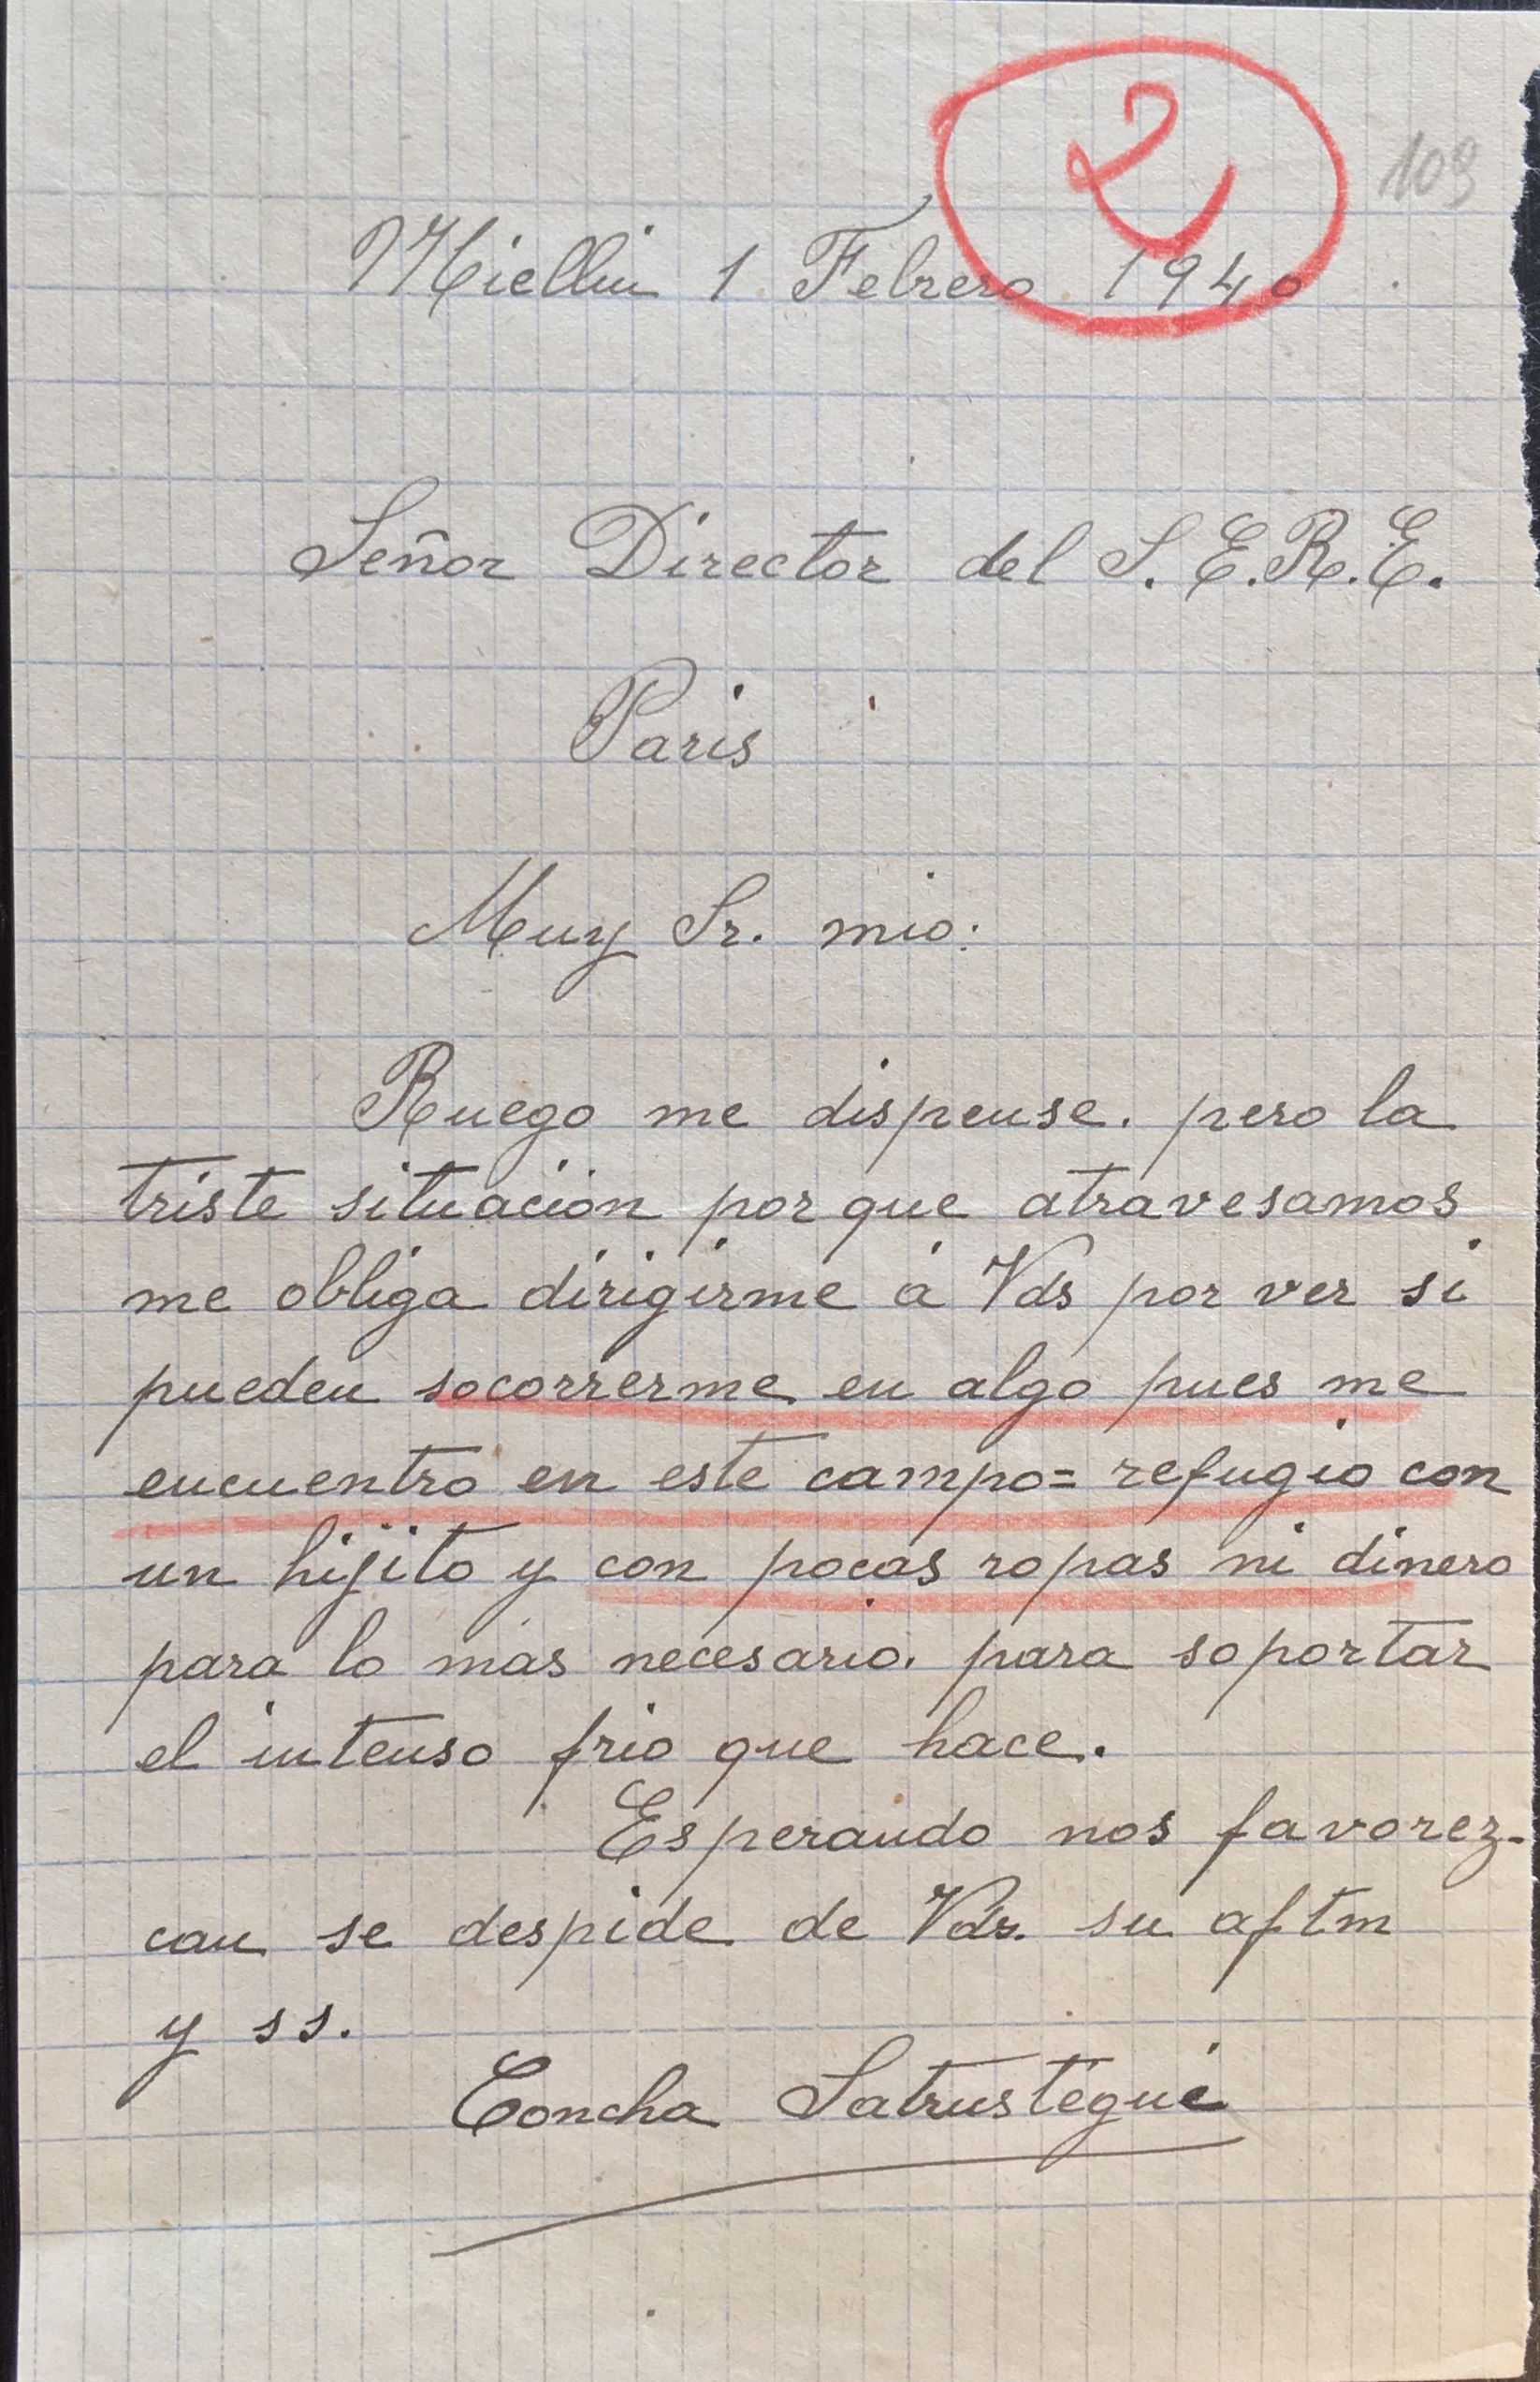 2
109
Miellin 1 Febrero 1940
Señor Director del S.E.R.E.
Paris
Muy Sr. mio:
Ruego me dispense. pero la
triste situación por que atravesamos
me obliga dirigirme á Vds por ver si
pueden socorrerme en algo pues me
encuentro en este campo = refugio con
un hijito y con pocas ropas ni dinero
para lo mas necesario. para soportar
el intenso frio que hace.
Esperando nos favorez-
can se despide de Vds. su aftm
y ss.
Concha Satrustegui